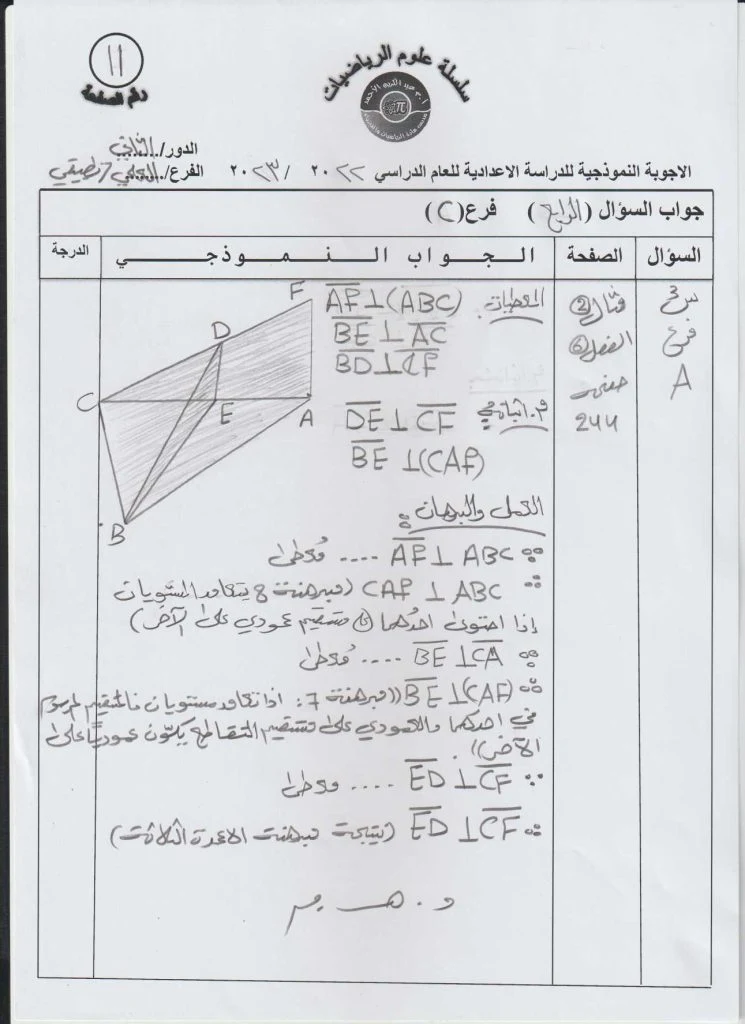 11
رقم الصفحة
سلسلة علوم الرياضيات
π
الدور/ الثاني
الاجوبة النموذجية للدراسة الاعدادية للعام الدراسي ٢٠٢٢ / ٢٠٢٣ الفرع/ العلمي / تطبيقي
جواب السؤال (الرابع) فرع (C)
السؤال الصفحة الجواب النموذجي الدرجة
س3 مثال (2) المعطيات: AF⊥(ABC)
فرع الفصل (6) BE⊥AC
A صفحة BD⊥CF
244 م. اثباته DE⊥CF
BE⊥(CAF)
F
D
C
E
A
B
الحل والبرهان:
∵ AF⊥ABC .... مُعطى
∴ CAF⊥ABC (مبرهنة 8 يتعامد المستويات
إذا احتوى احدهما على مستقيم عمودي على الآخر)
∵ BE⊥CA .... مُعطى
∴ BE⊥(CAF) ((مبرهنة 7: اذا تعامد مستويان فالمستقيم المرسوم
في احدهما والعمودي على مستقيم التقاطع يكون عمودياً على
الآخر)).
∵ ED⊥CF .... معطى
∴ ED⊥CF (نتيجة مبرهنة الاعمدة الثلاثة)
و. هـ. م